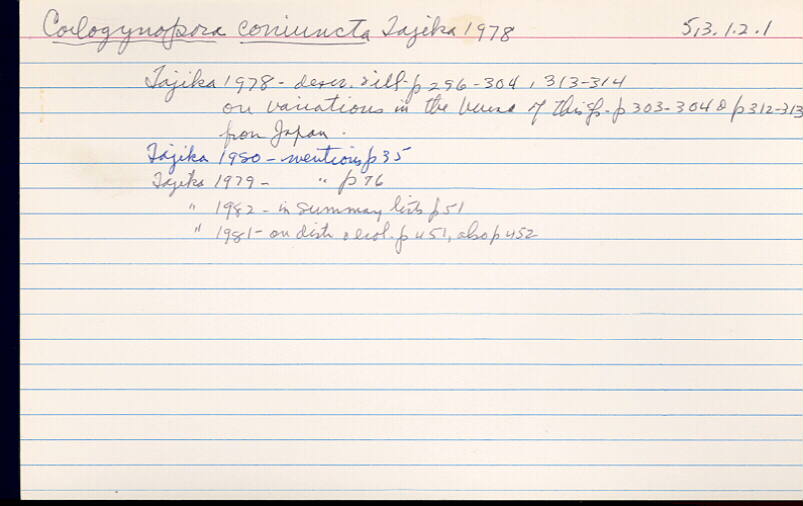 Coelogynopora coniuncta Tajika 1978 5.3.1.2.1
Tajika 1978 - descr. & ill. p 296-304, 313-314
on variations in the bursa of this sp. p 303-304 & p 312-313
from Japan.
Tajika 1980 - mentions p 35
Tajika 1979 - " p 76
" 1982 - in summary lists p 51
" 1981 - on distr. & ecol. p 451, also p 452